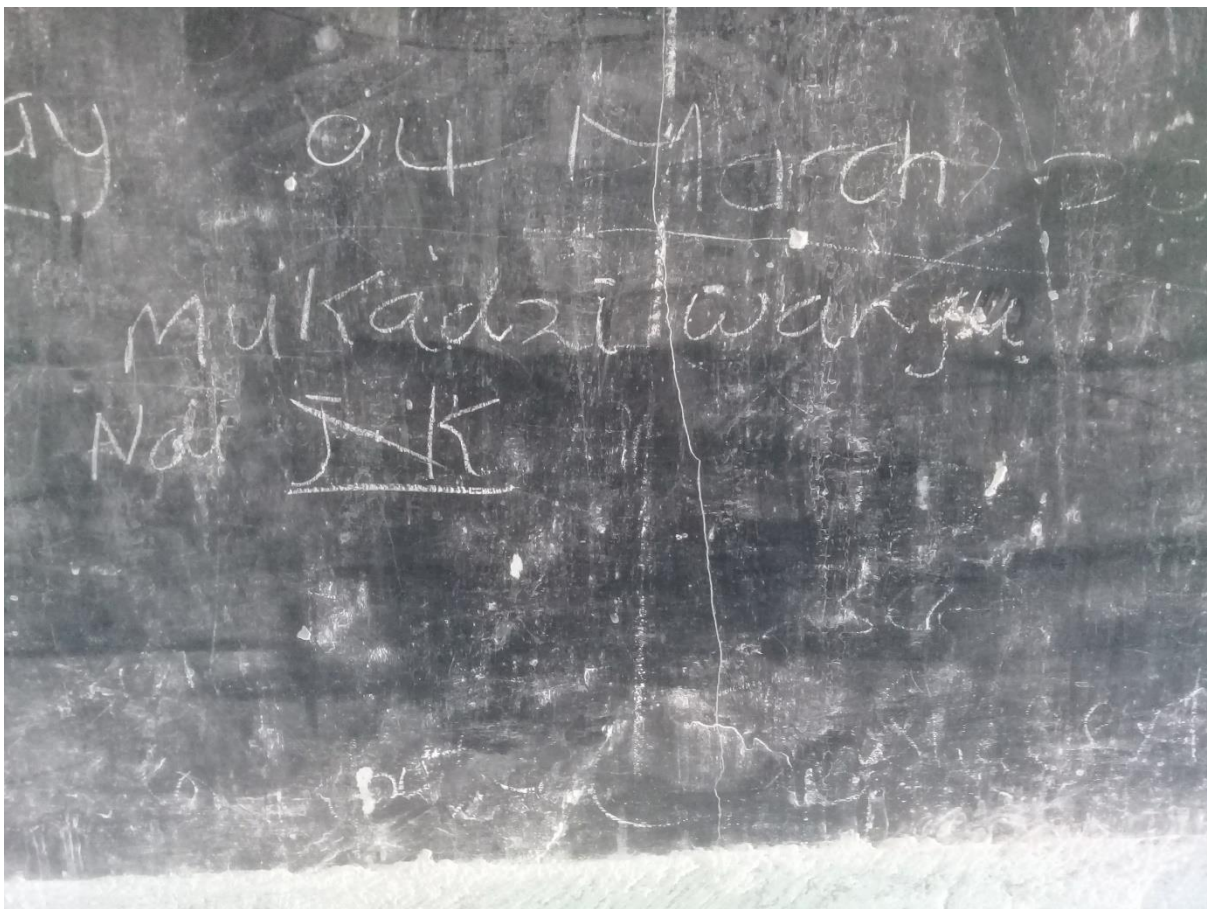 ay 04 March 20
Mukadzi wangu
Ndi JNK